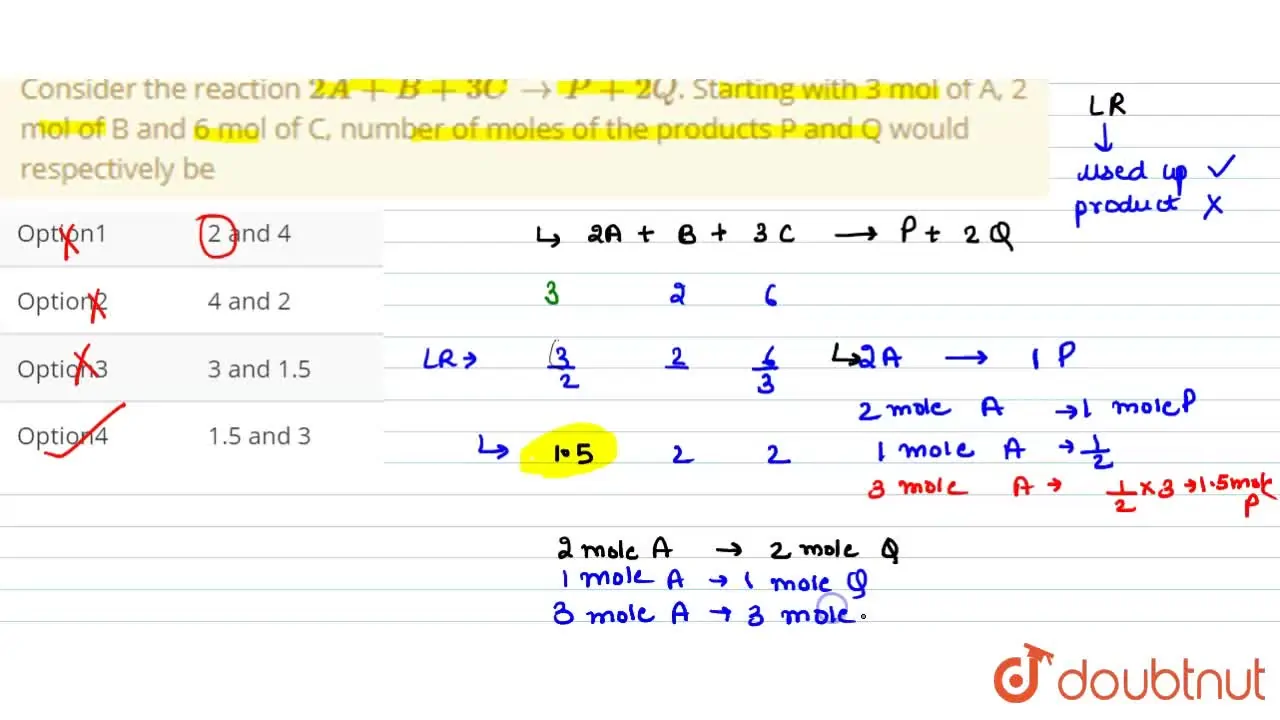 Consider the reaction 2A + B + 3C → P + 2Q. Starting with 3 mol of A, 2
mol of B and 6 mol of C, number of moles of the products P and Q would
respectively be
LR
↓
used up ✓
product ×
Option1 2 and 4
Option2 4 and 2
Option3 3 and 1.5
Option4 1.5 and 3
↳ 2A + B + 3C → P + 2Q
3 2 6
LR → 3/2 2 6/3
↳ 1.5 2 2
↳ 2A → 1 P
2 mole A → 1 mole P
1 mole A → 1/2
3 mole A → 1/2 × 3 → 1.5 mole P
2 mole A → 2 mole Q
1 mole A → 1 mole Q
3 mole A → 3 mole
doubtnut